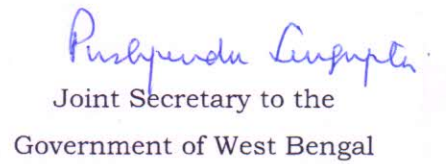 Pushpendu Sengupta
Joint Secretary to the
Government of West Bengal